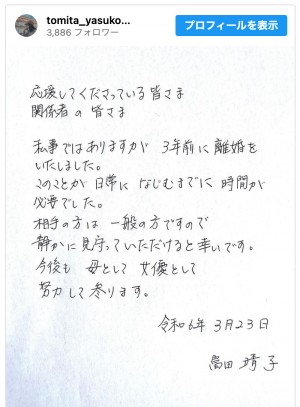 tomita_yasuko...
3,886 フォロワー
プロフィールを表示
応援してくださっている皆さま
関係者の皆さま
私事ではありますが 3年前に離婚を
いたしました。
このことが日常になじむまでに時間が
必要でした。
相手の方は一般の方ですので
静かに見守っていただけると幸いです。
今後も 母として 女優として
努力して参ります。
令和6年3月23日
富田 靖子